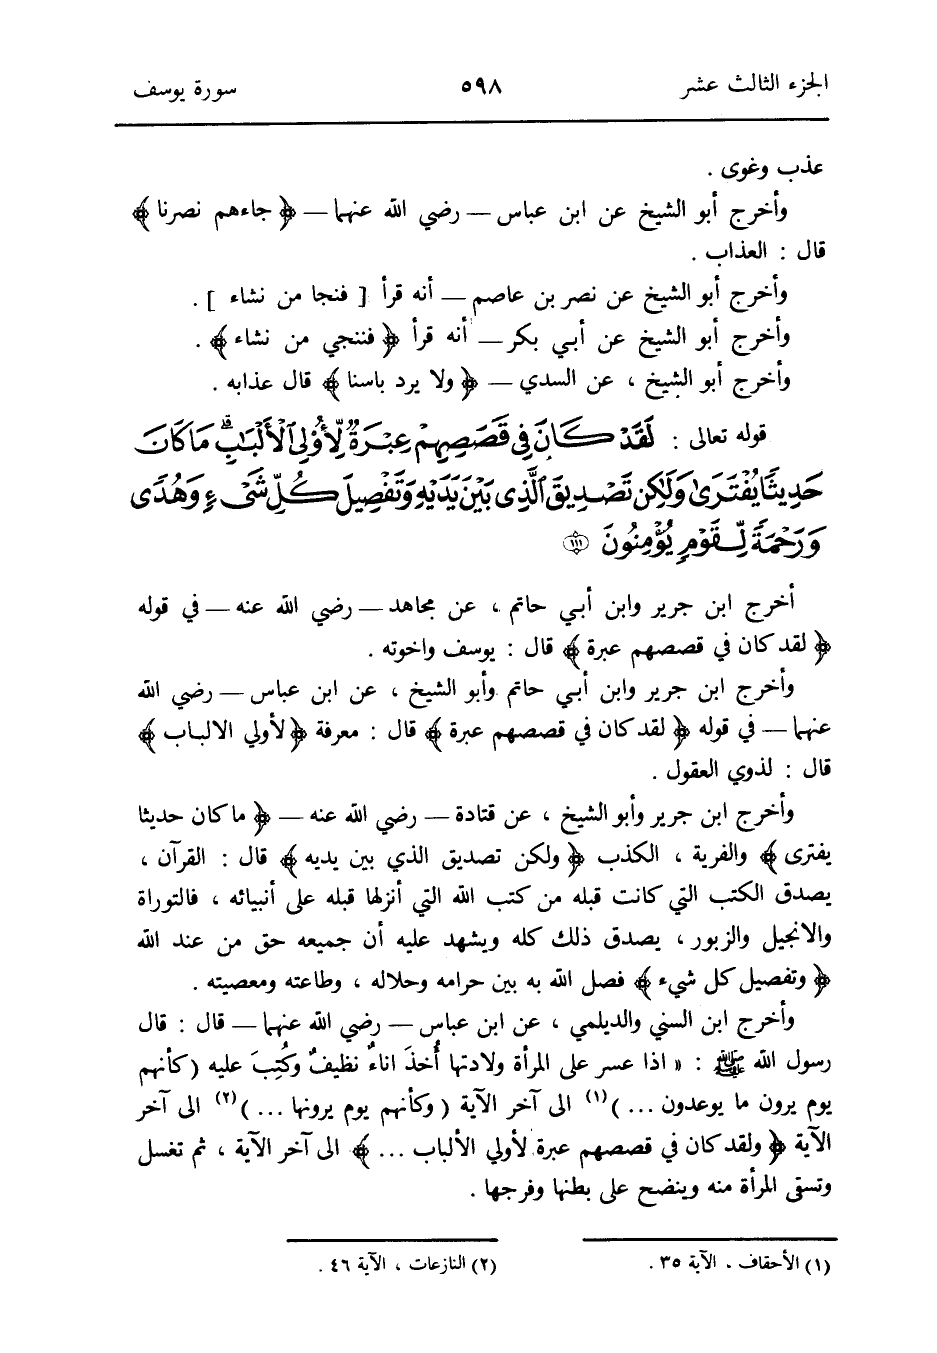 الجزء الثالث عشر ٥٩٨ سورة يوسف
عذب وغوى .
وأخرج أبو الشيخ عن ابن عباس — رضي الله عنهما — ﴿ جاءهم نصرنا ﴾
قال : العذاب .
وأخرج أبو الشيخ عن نصر بن عاصم — أنه قرأ [ فنجا من نشاء ] .
وأخرج أبو الشيخ عن أبي بكر — أنه قرأ ﴿ فننجي من نشاء ﴾ .
وأخرج أبو الشيخ ، عن السدي — ﴿ ولا يرد باسنا ﴾ قال عذابه .
قوله تعالى : لَقَدْ كَانَ فِي قَصَصِهِمْ عِبْرَةٌ لِّأُوْلِي ٱلْأَلْبَٰبِۗ مَا كَانَ
حَدِيثًا يُفْتَرَىٰ وَلَٰكِن تَصْدِيقَ ٱلَّذِي بَيْنَ يَدَيْهِ وَتَفْصِيلَ كُلِّ شَيْءٍ وَهُدًى
وَرَحْمَةً لِّقَوْمٍ يُؤْمِنُونَ ١١١
أخرج ابن جرير وابن أبي حاتم ، عن مجاهد — رضي الله عنه — في قوله
﴿ لقد كان في قصصهم عبرة ﴾ قال : يوسف واخوته .
وأخرج ابن جرير وابن أبي حاتم وأبو الشيخ ، عن ابن عباس — رضي الله
عنهما — في قوله ﴿ لقد كان في قصصهم عبرة ﴾ قال : معرفة ﴿ لأولي الالباب ﴾
قال : لذوي العقول .
وأخرج ابن جرير وأبو الشيخ ، عن قتادة — رضي الله عنه — ﴿ ما كان حديثا
يفترى ﴾ والفرية ، الكذب ﴿ ولكن تصديق الذي بين يديه ﴾ قال : القرآن ،
يصدق الكتب التي كانت قبله من كتب الله التي أنزلها قبله على أنبيائه ، فالتوراة
والانجيل والزبور ، يصدق ذلك كله ويشهد عليه أن جميعه حق من عند الله
﴿ وتفصيل كل شيء ﴾ فصل الله به بين حرامه وحلاله ، وطاعته ومعصيته .
وأخرج ابن السني والديلمي ، عن ابن عباس — رضي الله عنهما — قال : قال
رسول الله ﷺ : « اذا عسر على المرأة ولادتها أُخذَ اناءٌ نظيفٌ وكُتِبَ عليه ( كأنهم
يوم يرون ما يوعدون ... )(١) الى آخر الآية ( وكأنهم يوم يرونها ... )(٢) الى آخر
الآية ﴿ ولقد كان في قصصهم عبرة لأولي الألباب ... ﴾ الى آخر الآية ، ثم تغسل
وتسقى المرأة منه وينضح على بطنها وفرجها .
(١) الأحقاف ، الآية ٣٥ . (٢) النازعات ، الآية ٤٦ .